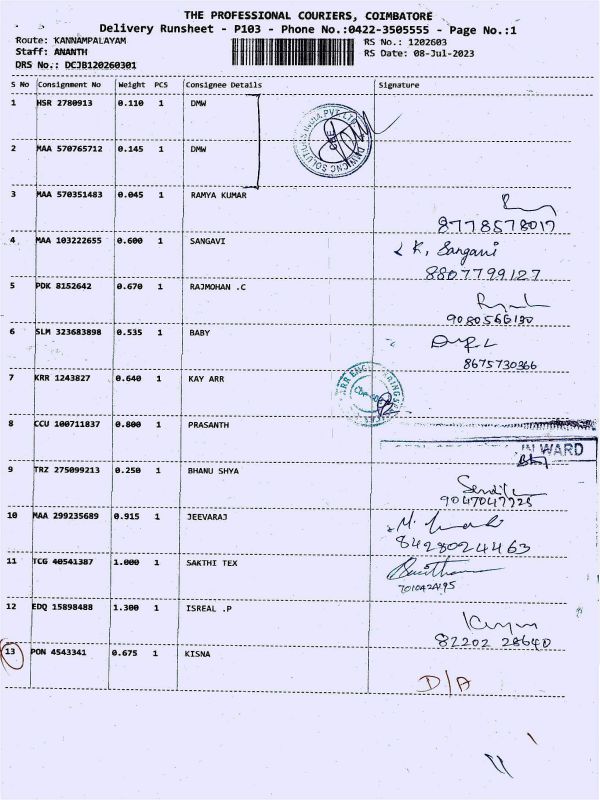 THE PROFESSIONAL COURIERS, COIMBATORE
Delivery Runsheet - P103 - Phone No.:0422-3505555 - Page No.:1
Route: KANNAMPALAYAM RS No.: 1202603
Staff: ANANTH RS Date: 08-Jul-2023
DRS No.: DCJB120260301
S No Consignment No Weight PCS Consignee Details Signature
1 HSR 2780913 0.110 1 DMW
2 MAA 570765712 0.145 1 DMW
3 MAA 570351483 0.045 1 RAMYA KUMAR
8778578017
4 MAA 103222655 0.600 1 SANGAVI K. Sangavi
8807799127
5 PDK 8152642 0.670 1 RAJMOHAN .C
9080566130
6 SLM 323683898 0.535 1 BABY
8675730366
7 KRR 1243827 0.640 1 KAY ARR
8 CCU 100711837 0.800 1 PRASANTH
INWARD
9 TRZ 275099213 0.250 1 BHANU SHYA
9047047725
10 MAA 299235689 0.915 1 JEEVARAJ
8428024463
11 TCG 40541387 1.000 1 SAKTHI TEX
12 EDQ 15898488 1.300 1 ISREAL .P
82202 28640
13 PON 4543341 0.675 1 KISNA
D/A